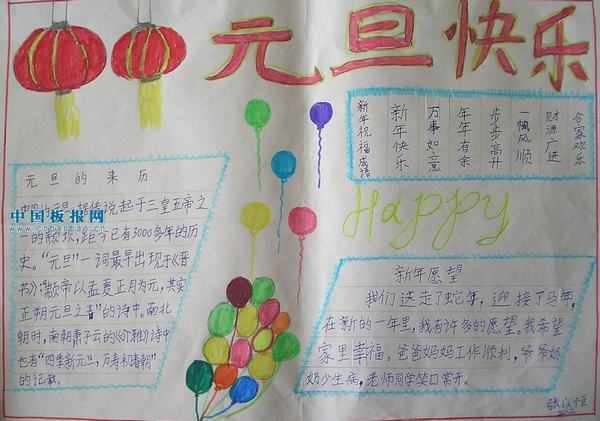 元旦快乐
新年祝福成语
新年快乐
万事如意
年年有余
步步高升
一帆风顺
财源广进
合家欢乐
元旦的来历
据传说起于三皇五帝之
中国板报网
一的颛顼，距今已有3000多年的历
史。“元旦”一词最早出现于《晋
书》：“颛帝以孟夏正月为元，其实
正朔元旦之春”的诗中。南北
朝时，南朝萧子云的《介雅》诗中
也有“四季新元旦，万寿初春朝”
的记载。
Happy
新年愿望
我们送走了蛇年，迎接了马年，
在新的一年里，我有许多的愿望。我希望
家里幸福，爸爸妈妈工作顺利，爷爷奶
奶少生病，老师同学笑口常开。